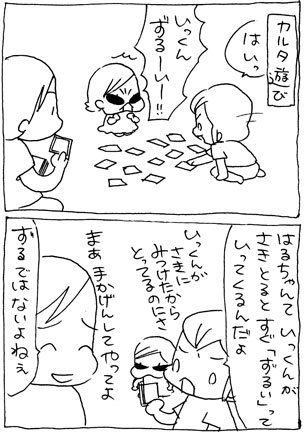 カルタ遊び
はいっ
いっくん
ずるーいー!!
はるちゃんて いっくんが
さきとるとすぐ「ずるい」って
いってくるんだよ
いっくんが
さきに
みつけたから
とってるのにさ
まあ 手かげんしてやってよ
ずるではないよねぇ